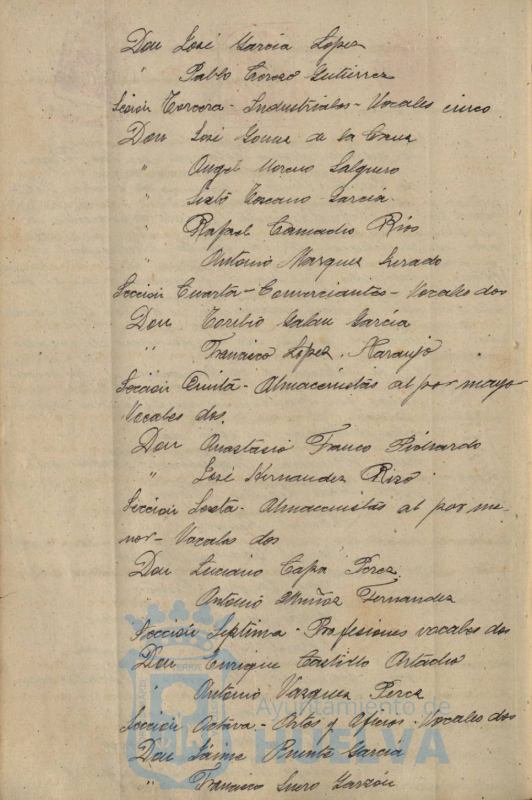 Don José García López
" Pablo Gutierrez
Sección Tercera - Industriales - Vocales cinco
Don José de la
" Angel Moreno Salguero
" Sixto García
" Rafael Camacho Ríos
" Antonio Marquez
Sección Cuarta - Comerciantes - Vocales dos
Don Toribio Galan García
" Francisco López Naranjo
Sección Quinta - Almacenistas al por mayor
Vocales dos.
Don Anastasio Franco
" José Hernandez Rizo
Sección Sexta - Almacenistas al por me-
nor - Vocales dos
Don Luciano Capa Perez
" Antonio Muñoz Fernandez
Sección Septima - Profesiones vocales dos
Don Enrique Castillo
" Antonio Vazquez Perez
Ayuntamiento de
Sección Octava - Artes y Oficios - Vocales dos
HUELVA
Don Jaime Puente García
" Francisco Garzón